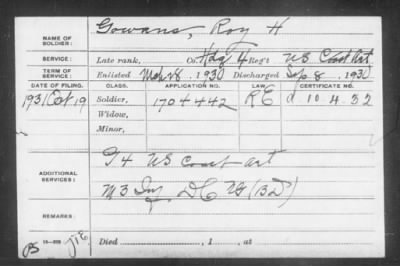 NAME OF SOLDIER: Gowans, Roy H
SERVICE: Late rank, Co. Hdq 4 Reg't US Coast Art
TERM OF SERVICE: Enlisted Mar 28, 1930 Discharged Sep 8, 1930
DATE OF FILING. CLASS. APPLICATION NO. LAW. CERTIFICATE NO.
1931 Oct 19 Soldier, 1704442 RE d. 10.4.32
Widow,
Minor,
ADDITIONAL SERVICES: G 4 US Coast Art
M 3 Inf DC NG (13D)
REMARKS:
Died , 1 , at